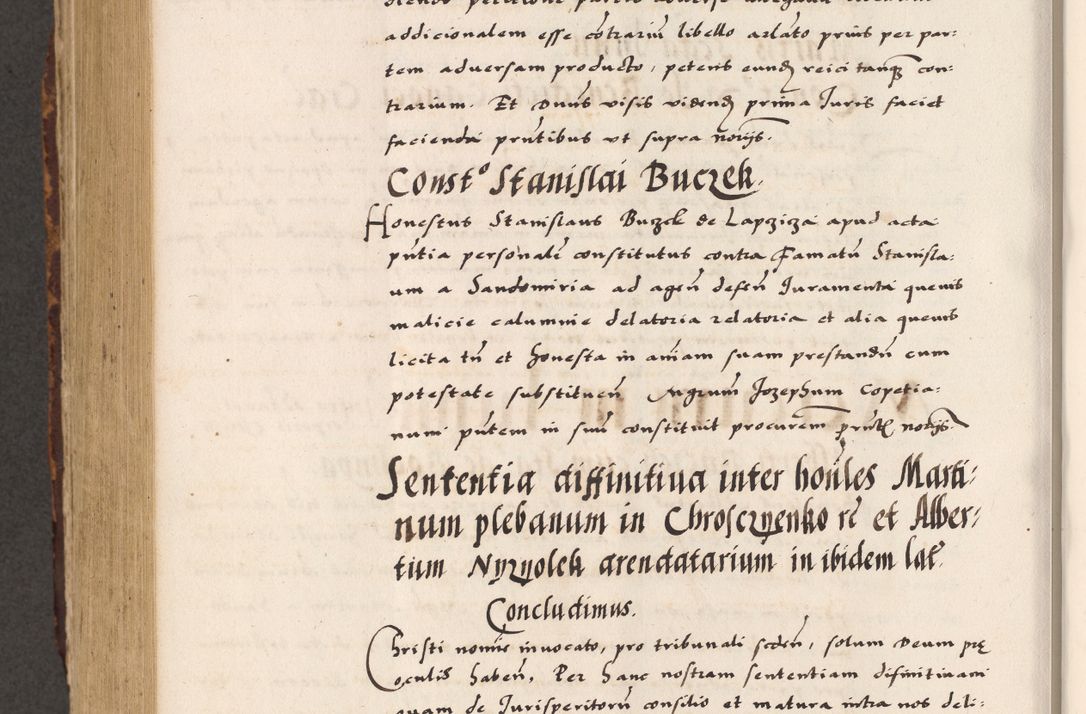 addicionalem esse cōtrariū libello arlato prius per par:
tem adversam producto, petens eundē reici tanq̄ con:
trarium. Et Dnus visis videndē prima Juris faciet
facienda prn̄tibus vt supra norijs.
Const° Stanislai Buczek.
Honestus Stanislaus Buczek de Lapczicza apud acta
pn̄tia personalr̄ constitutus contra Famatū Stanisla:
um a Sandomiria ad agen̄ defen̄ Juramenta quevis
malicie calumnie delatoria relatoria et alia quevis
licita tn̄ et honesta in aīam suam prestandū cum
potestate substituen̄ Mgrum Jozephum Copetia:
num pn̄tem in suū constituit procurem̄ prn̄t norijs
Sententia diffinitiua inter honn̄les Marti:
num plebanum in Chrosczyenko rē et Alber:
tum Nyzyolek arendatarium in ibidem lat̄.
Concludimus.
Christi noīe invocato, pro tribunali seden̄, solum Deum prę
oculis haben̄, Per hanc nostram sententiam difinitivam
quam de Jurisperitorū consilio et matura intra nos deli: